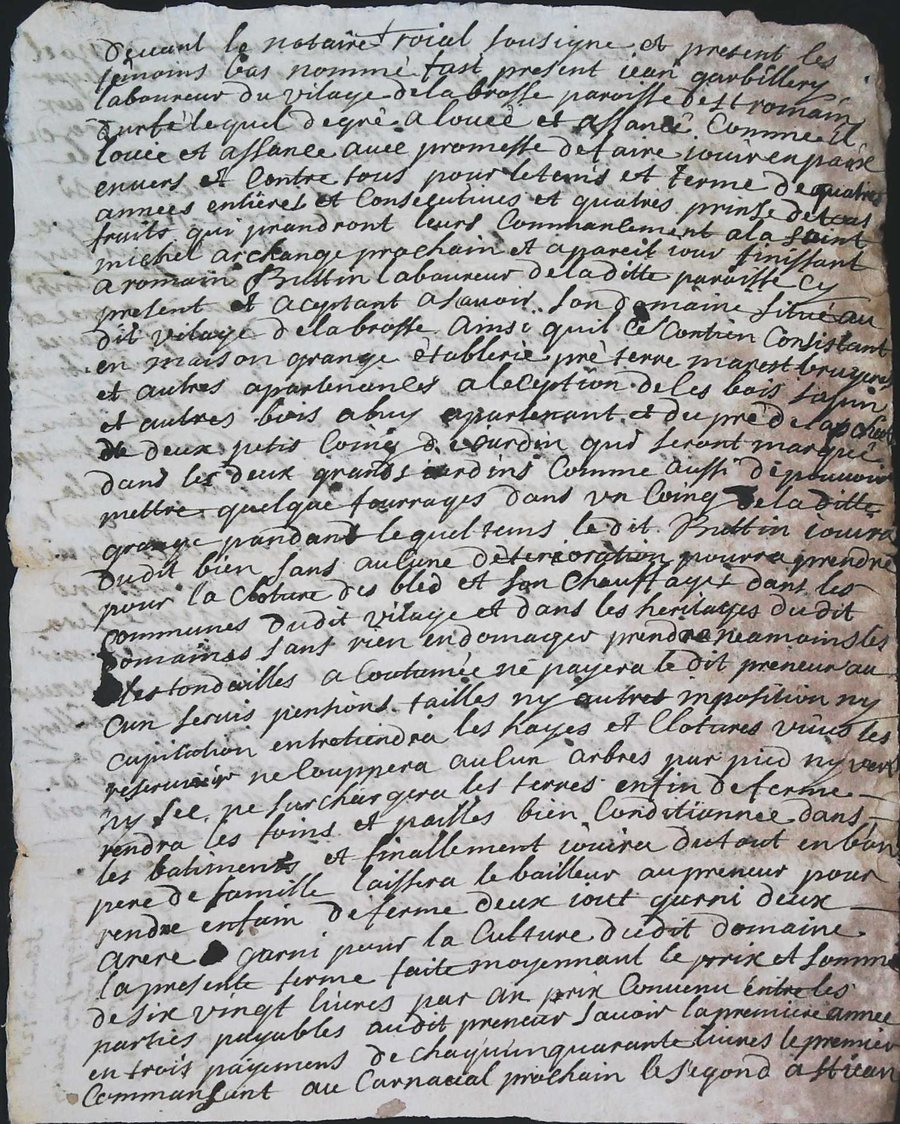 devant le notaire roial sousigne et present les
temoins bas nommé fust present iean garbillery
laboureur du vilage de la brosse paroisse de st romain
durfé lequel de gré a loueé et assanсé Comme il
loüee et assance avec promesse de faire iouir en paix
envers et Contre tous pour le tems et terme de quatre
années entieres et Consecutives et quatres prinse de tous
fruits qui prandront leurs Commancement a la saint
michel archange prochain et a pareil iour finissant
a romain Buttin laboureur de la ditte paroisse Cy
present et aceptant a savoir son domaine situé au
dit vilage de la brosse Ainsi quil Ce Contien Consistant
en maison grange établerie pré terre marest bruyeres
et autres apartenances a leception de les bois sapin
et autres bois a luy apartenant et du pré de la
de deux petis Coing de iardin qui seront marqué
dans les deux grands iardins Comme aussi de pouvoir
mettre quelque fourrages dans un Coing de la ditte
grange pandant lequel tems le dit Buttin iouira
du dit bien sans aucune deterioration pourra prendre
pour la Cloture des bled et son Chauffage dans les
communes du dit vilage et dans les heritages du dit
domaines sans rien endomager prendra neamoins les
les tondailles a Coutumée ne payera le dit preneur au
cun servis pentions tailles ny autres imposition ny
capitation entretiendra les hayes et Clotures vives les
reservoir ne Couppera aucun arbres par pied ny vers
ny sec ne surchargera les terres enfin de ferme
rendra les foins et pailles bien Conditionnee dans
les batiments et finallement iouira du tout en bon
pere de famille laissera le bailleur au preneur pour
rendre enfain de ferme deux ioutt garni deux
arere garni pour la Culture du dit domaine
la presente ferme faite moyennant le prix et somme
de six vingt livres par an prix Convenu entre les
parties payables audit preneur savoir la premiere année
en trois payemens de chaqu'un quarante livres le premier
Commansant au Carnaval prochain le segond a st iean